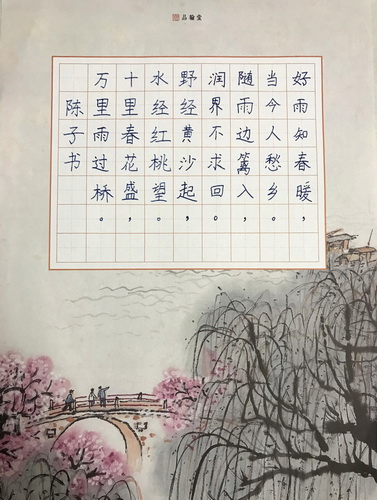 品翰堂
好雨知春暖，
当今人愁乡。
随雨边篱入，
润界不求回。
野经黄沙起，
水经红桃望。
十里春花盛，
万里雨过桥。
陈子书